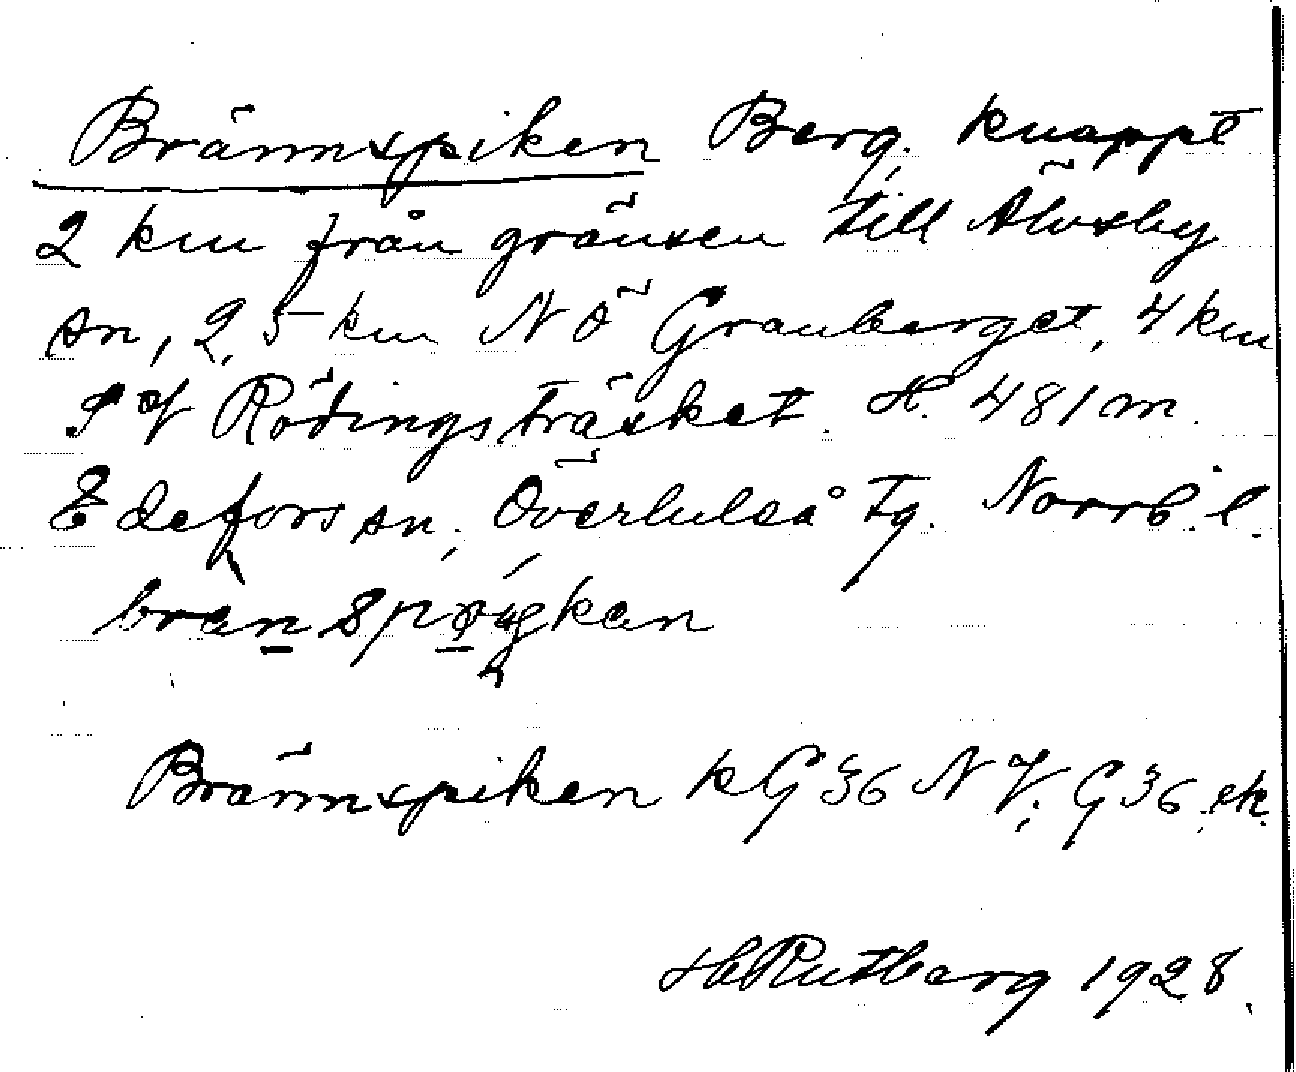 Brännspiken Berg. knappt
2 km från gränsen till Älvsby
sn, 2,5 km NÖ Granberget, 4 km
SV Rödingsträsket. H. 481 m.
Edefors sn, Överluleå tg. Norrb. l.
Brännspiken k G 36 NV; G 36 ek.
H Rutberg 1928.